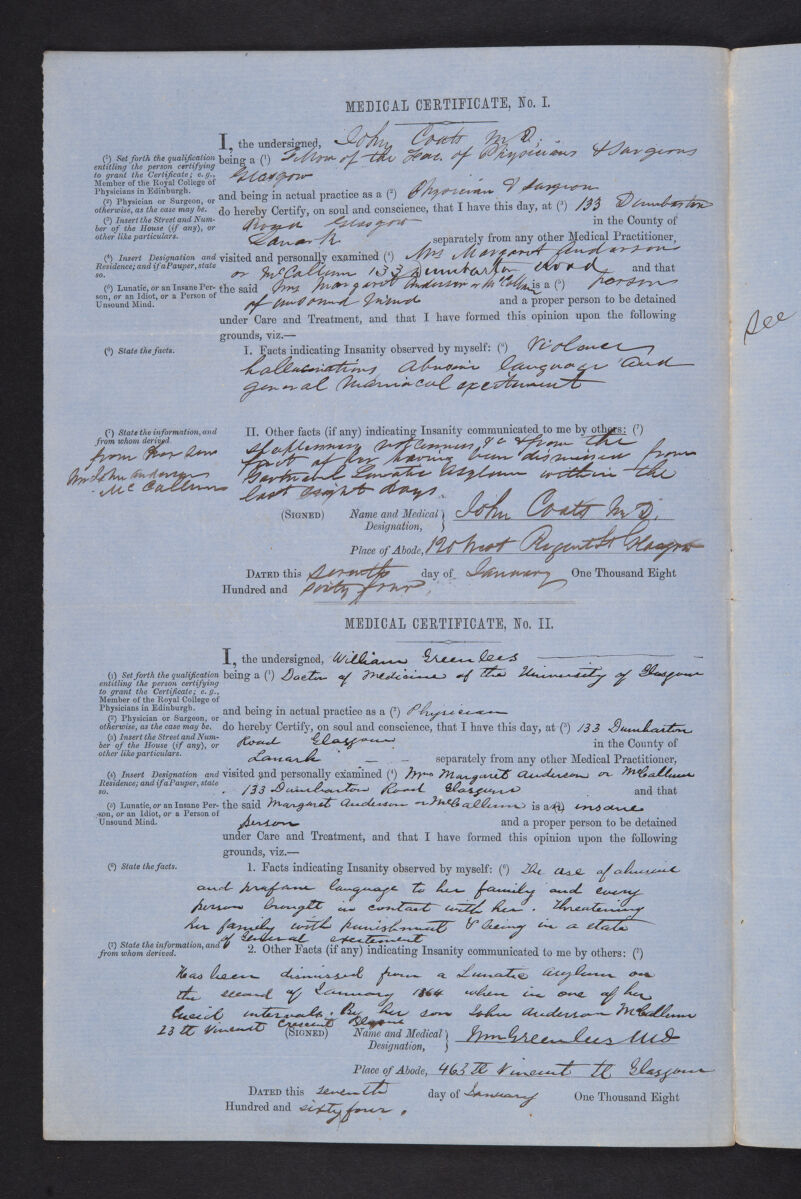 MEDICAL CERTIFICATE, No. I.
I, the undersigned, John Coats M.D.
(1) Set forth the qualification
entitling the person certifying
to grant the Certificate; e.g.,
Member of the Royal College of
Physicians in Edinburgh.
being a (1) Fellow of the Fac. of Physicians & Surgeons
Glasgow
(2) Physician or Surgeon, or
otherwise, as the case may be.
and being in actual practice as a (2) Physician & Surgeon
(3) Insert the Street and Num-
ber of the House (if any), or
other like particulars.
do hereby Certify, on soul and conscience, that I have this day, at (3) 133 Dumbarton
Road Glasgow in the County of
Lanark separately from any other Medical Practitioner,
(4) Insert Designation and
Residence; and if a Pauper, state
so.
visited and personally examined (4) Mrs Margaret Anderson
or McCallum 133 Dumbarton Road and that
(5) Lunatic, or an Insane Per-
son, or an Idiot, or a Person of
Unsound Mind.
the said Mrs Margaret Anderson or McCallum is a (5) person
of unsound mind and a proper person to be detained
under Care and Treatment, and that I have formed this opinion upon the following
grounds, viz.—
(6) State the facts.
I. Facts indicating Insanity observed by myself: (6) Violence
hallucinations abusive language and
general maniacal excitement
(7) State the information, and
from whom derived.
from her son
John Anderson
McCallum
II. Other facts (if any) indicating Insanity communicated to me by others: (7)
Sleeplessness &c & from the
fact of her having been dismissed from
Gartnavel Lunatic Asylum within the
last eight days.
(SIGNED) Name and Medical Designation, John Coats M.D.
Place of Abode, 120 West Regent St Glasgow
DATED this seventh day of January One Thousand Eight
Hundred and sixty four.
MEDICAL CERTIFICATE, No. II.
I, the undersigned, William Greenlees
(1) Set forth the qualification
entitling the person certifying
to grant the Certificate; e.g.,
Member of the Royal College of
Physicians in Edinburgh.
being a (1) Doctor of Medicine of the University of Glasgow
(2) Physician or Surgeon, or
otherwise, as the case may be.
and being in actual practice as a (2) Physician
(3) Insert the Street and Num-
ber of the House (if any), or
other like particulars.
do hereby Certify, on soul and conscience, that I have this day, at (3) 133 Dumbarton
Road Glasgow in the County of
Lanark separately from any other Medical Practitioner,
(4) Insert Designation and
Residence; and if a Pauper, state
so.
visited and personally examined (4) Mrs Margaret Anderson or McCallum
133 Dumbarton Road Glasgow and that
(5) Lunatic, or an Insane Per-
-son, or an Idiot, or a Person of
Unsound Mind.
the said Margaret Anderson or McCallum is a (5) insane
person and a proper person to be detained
under Care and Treatment, and that I have formed this opinion upon the following
grounds, viz.—
(6) State the facts.
1. Facts indicating Insanity observed by myself: (6) The use of abusive
and profane language to her family and every
person brought in contact with her. threatening
her family with punishment & being in a state
of general excitement
(7) State the information, and
from whom derived.
2. Other Facts (if any) indicating Insanity communicated to me by others: (7)
Has been dismissed from a Lunatic asylum on
the second of January 1864 when in one of her
lucid intervals. By her son John Anderson McCallum
23 St Vincent Crescent Glasgow
(SIGNED) Name and Medical Designation, Wm Greenlees MD
Place of Abode, 463 St Vincent St Glasgow
DATED this seventh day of January One Thousand Eight
Hundred and sixty four.
see